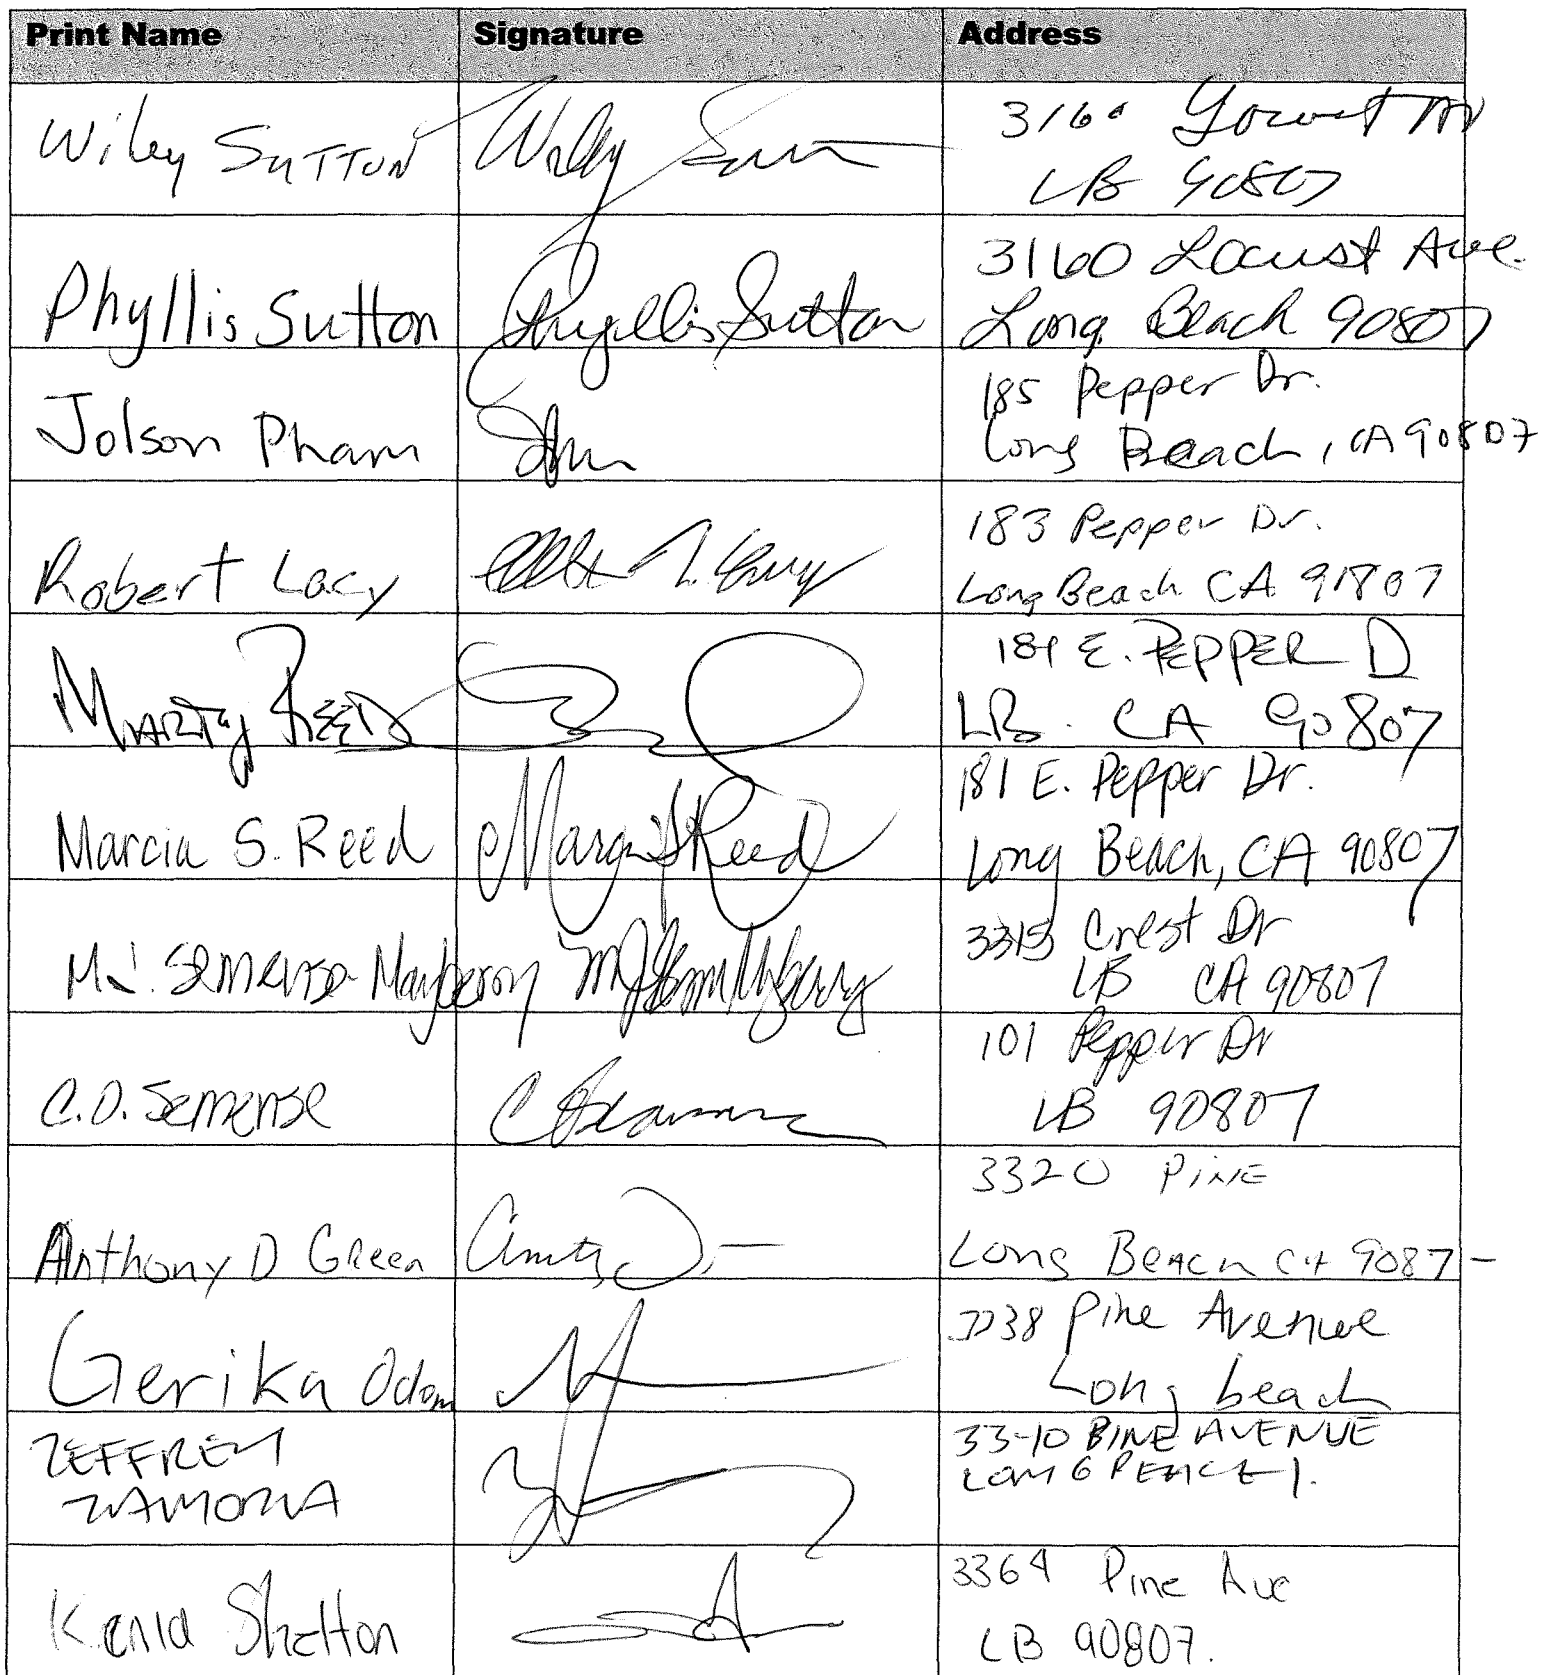 Print Name Signature Address
Wiley SUTTON Wiley 3160 Locust Av
LB 90807
Phyllis Sutton Phyllis Sutton 3160 Locust Ave.
Long Beach 90807
Jolson Pham 185 Pepper Dr.
Long Beach, CA 90807
Robert Lacy 183 Pepper Dr.
Long Beach CA 91807
MARTY REED 181 E. PEPPER D
LB. CA 90807
Marcia S. Reed Marcia S Reed 181 E. Pepper Dr.
Long Beach, CA 90807
M.J. Semense-Mayberry 3315 Crest Dr
LB CA 90807
C.D. Semense 101 Pepper Dr
LB 90807
Anthony D Green 3320 PINE
Long Beach CA 9087-
Gerika Odom Pine Avenue
Long beach
ZEFFREY ZAMORA 33-10 PINE AVENUE
LONG BEACH.
Kenia Shelton 3364 Pine Ave
LB 90807.